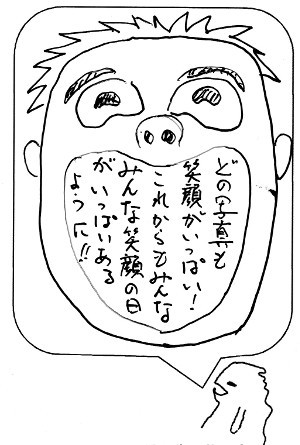 どの写真も
笑顔がいっぱい!
これからもみんな
みんな笑顔の日
がいっぱいある
ように!!